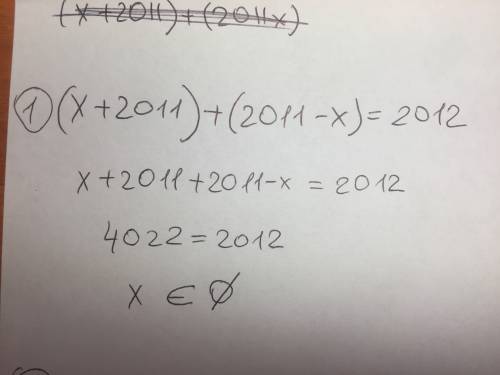 (x+2011)+(2011x)
① (x+2011)+(2011-x)=2012
x+2011+2011-x = 2012
4022=2012
x ∈ ∅